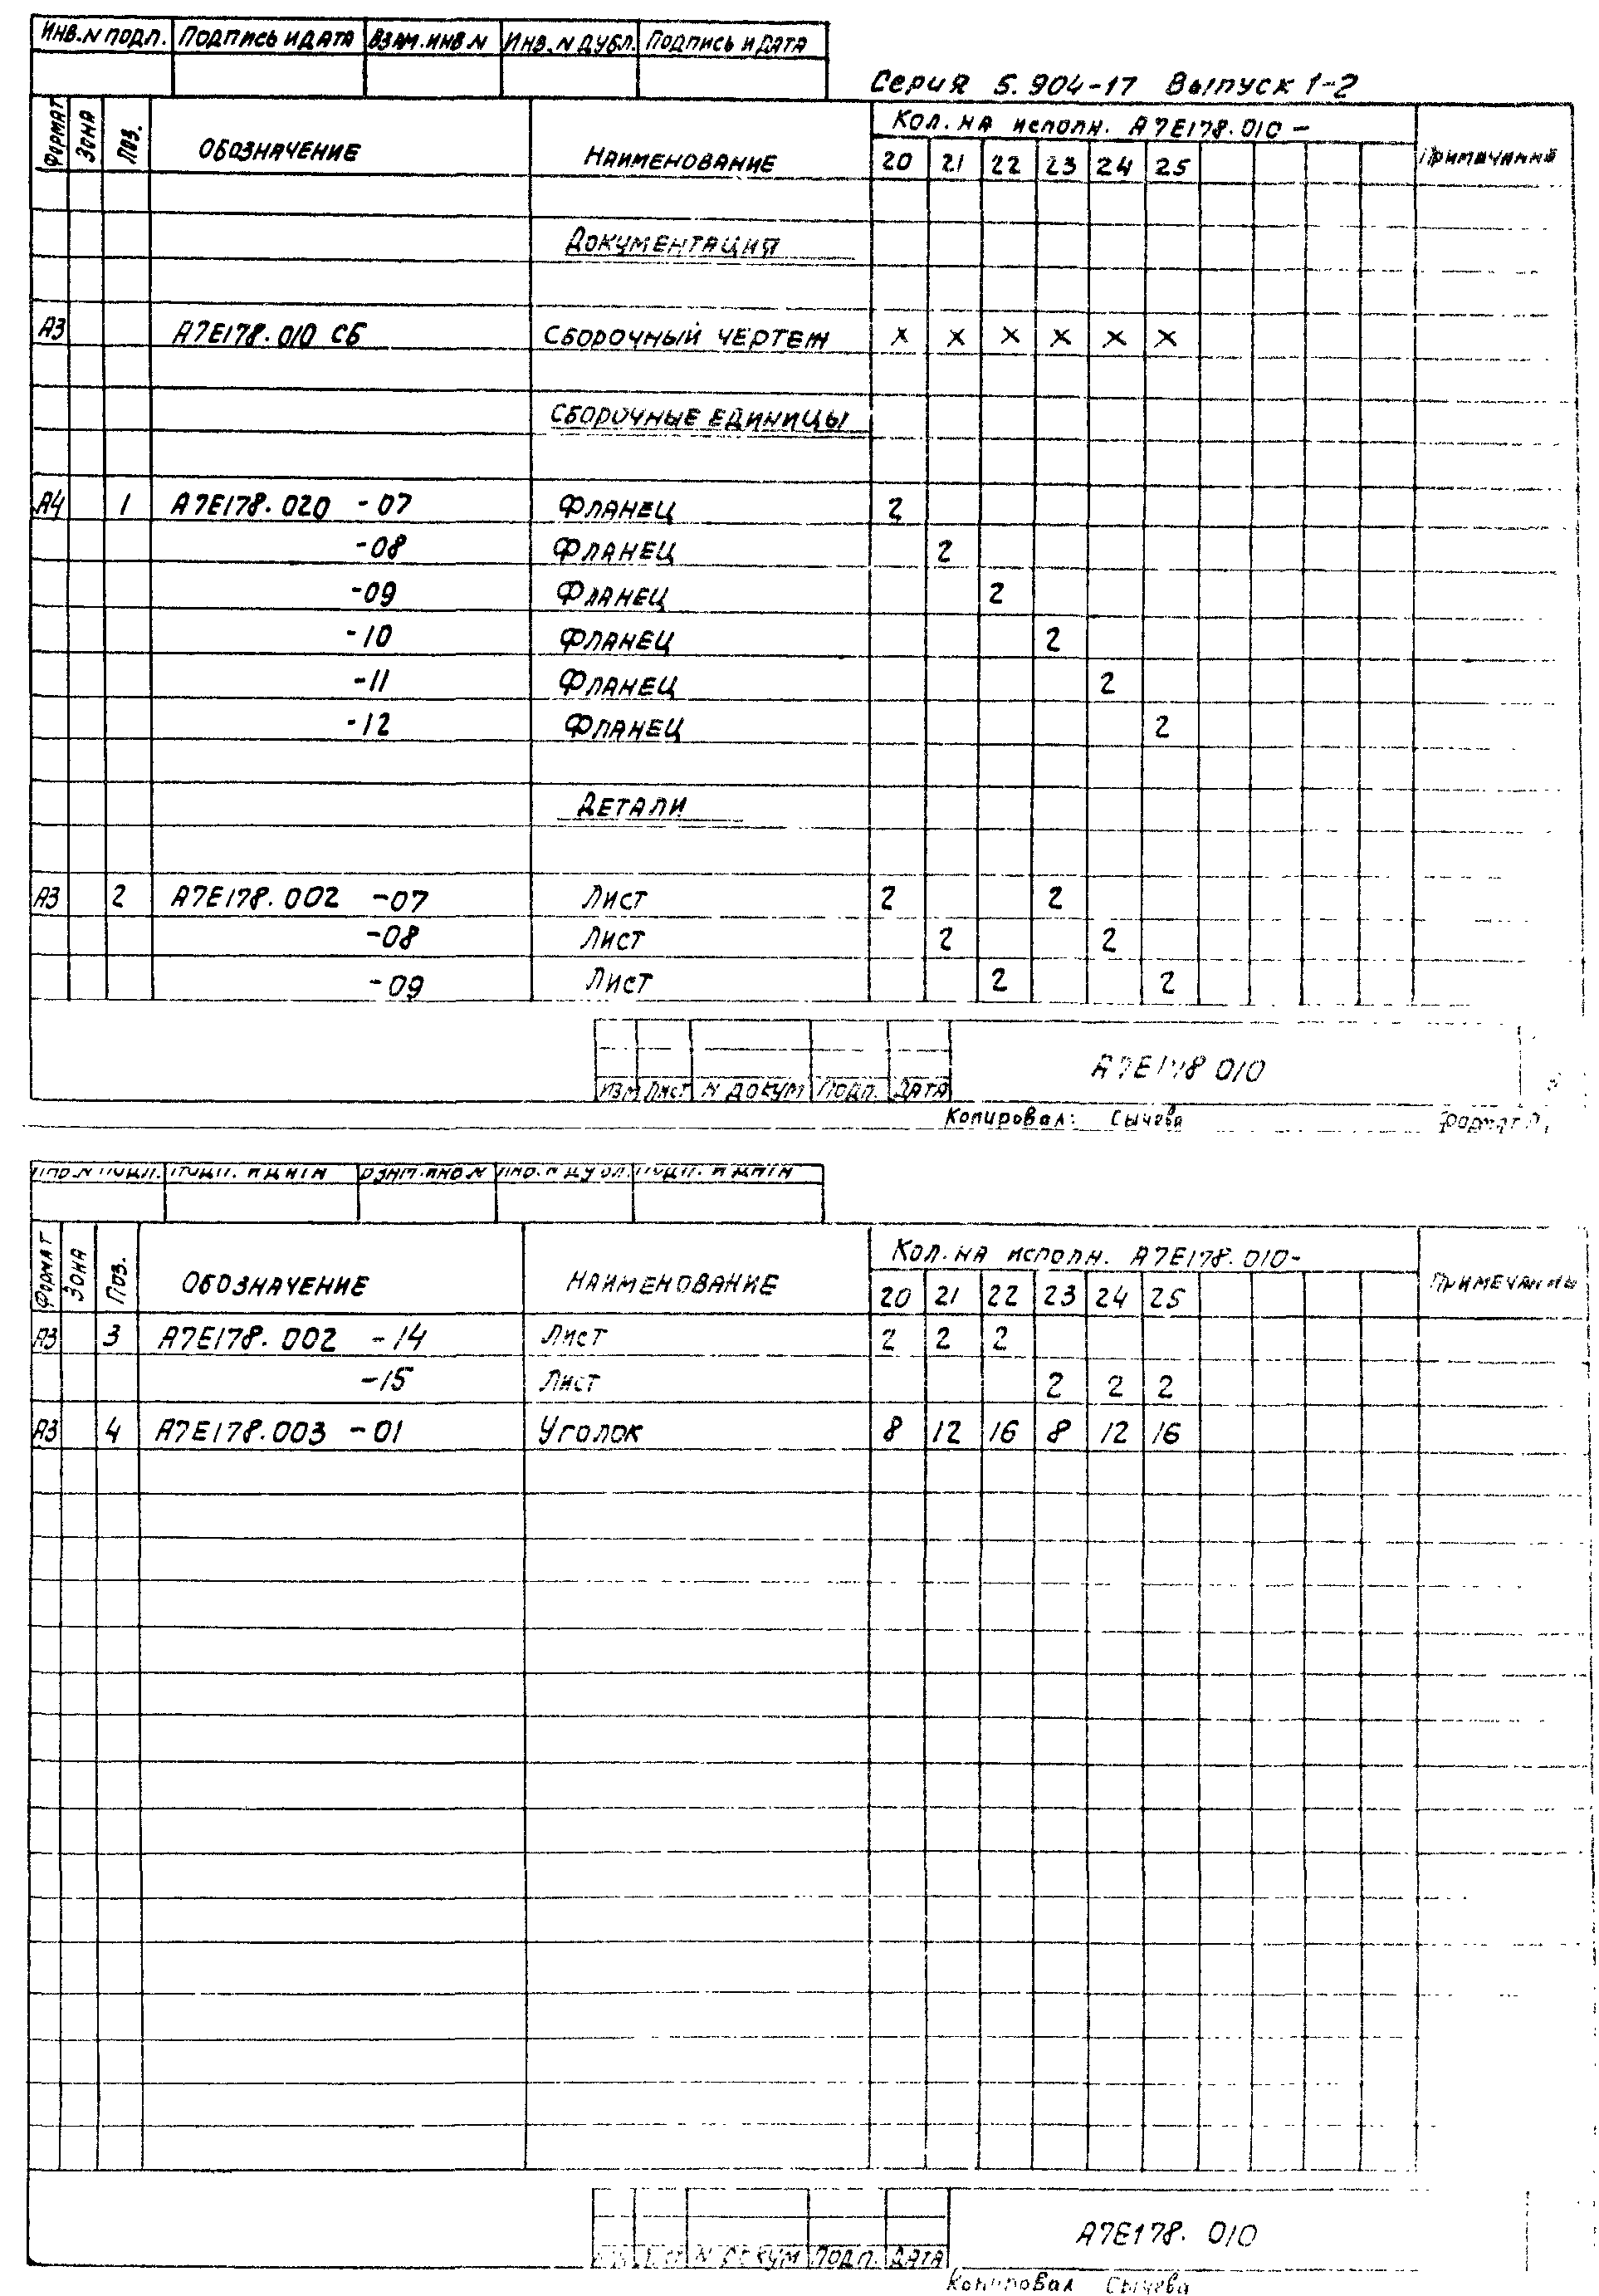 Инв. N подл. Подпись и дата Взам. инв N Инв. N дубл. Подпись и дата
Серия 5.904-17 Выпуск 1-2
Формат Зона Поз. Обозначение Наименование Кол. на исполн. А7Е178.010- Примечание
20 21 22 23 24 25
Документация
А3 А7Е178.010 СБ Сборочный чертеж х х х х х х
Сборочные единицы
А4 1 А7Е178.020 -07 Фланец 2
-08 Фланец 2
-09 Фланец 2
-10 Фланец 2
-11 Фланец 2
-12 Фланец 2
Детали
А3 2 А7Е178.002 -07 Лист 2 2
-08 Лист 2 2
-09 Лист 2 2
А7Е178 010
Изм Лист N докум Подп. Дата
Копировал: Сычева Формат
Инв. N подл. Подп. и дата Взам. инв. N Инв. N дубл. Подп. и дата
Формат Зона Поз. Обозначение Наименование Кол. на исполн. А7Е178.010- Примечание
20 21 22 23 24 25
А3 3 А7Е178.002 -14 Лист 2 2 2
-15 Лист 2 2 2
А3 4 А7Е178.003 -01 Уголок 8 12 16 8 12 16
А7Е178. 010
N докум Подп. Дата
Копировал Сычева